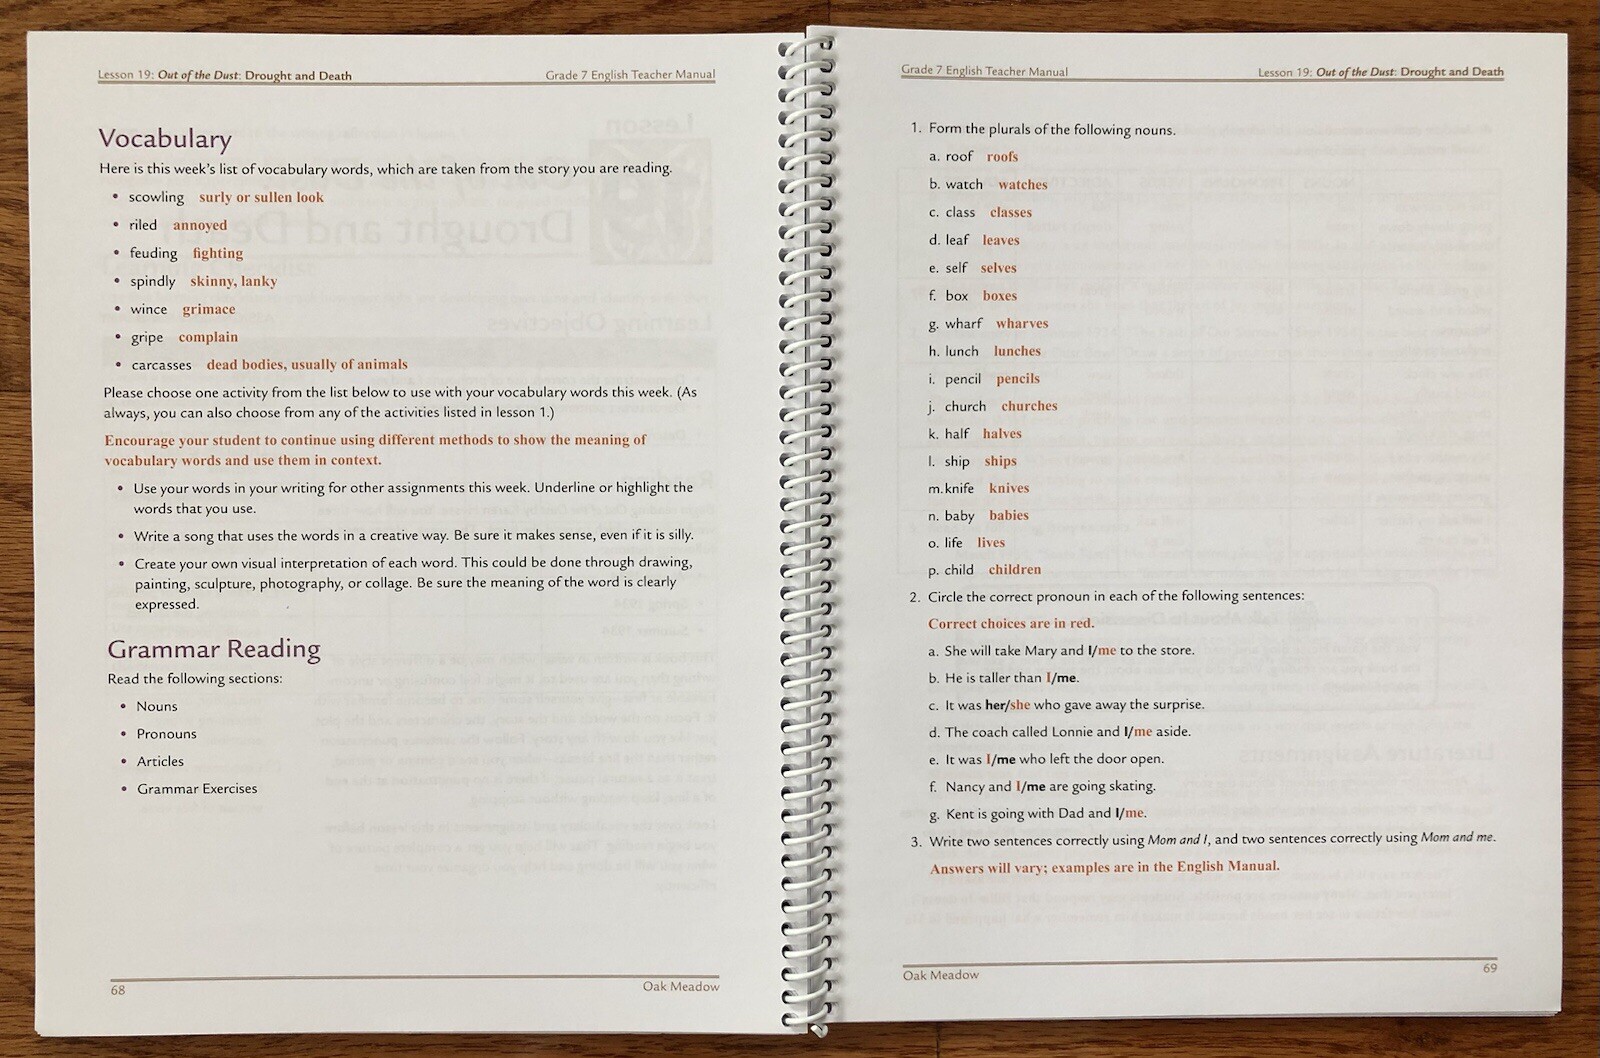 Lesson 19: Out of the Dust: Drought and Death
Grade 7 English Teacher Manual
Vocabulary
Here is this week's list of vocabulary words, which are taken from the story you are reading.
• scowling surly or sullen look
• riled annoyed
• feuding fighting
• spindly skinny, lanky
• wince grimace
• gripe complain
• carcasses dead bodies, usually of animals
Please choose one activity from the list below to use with your vocabulary words this week. (As
always, you can also choose from any of the activities listed in lesson 1.)
Encourage your student to continue using different methods to show the meaning of
vocabulary words and use them in context.
• Use your words in your writing for other assignments this week. Underline or highlight the
words that you use.
• Write a song that uses the words in a creative way. Be sure it makes sense, even if it is silly.
• Create your own visual interpretation of each word. This could be done through drawing,
painting, sculpture, photography, or collage. Be sure the meaning of the word is clearly
expressed.
Grammar Reading
Read the following sections:
• Nouns
• Pronouns
• Articles
• Grammar Exercises
68
Oak Meadow
Grade 7 English Teacher Manual
Lesson 19: Out of the Dust: Drought and Death
1. Form the plurals of the following nouns.
a. roof roofs
b. watch watches
c. class classes
d. leaf leaves
e. self selves
f. box boxes
g. wharf wharves
h. lunch lunches
i. pencil pencils
j. church churches
k. half halves
l. ship ships
m.knife knives
n. baby babies
o. life lives
p. child children
2. Circle the correct pronoun in each of the following sentences:
Correct choices are in red.
a. She will take Mary and I/me to the store.
b. He is taller than I/me.
c. It was her/she who gave away the surprise.
d. The coach called Lonnie and I/me aside.
e. It was I/me who left the door open.
f. Nancy and I/me are going skating.
g. Kent is going with Dad and I/me.
3. Write two sentences correctly using Mom and I, and two sentences correctly using Mom and me.
Answers will vary; examples are in the English Manual.
Oak Meadow
69